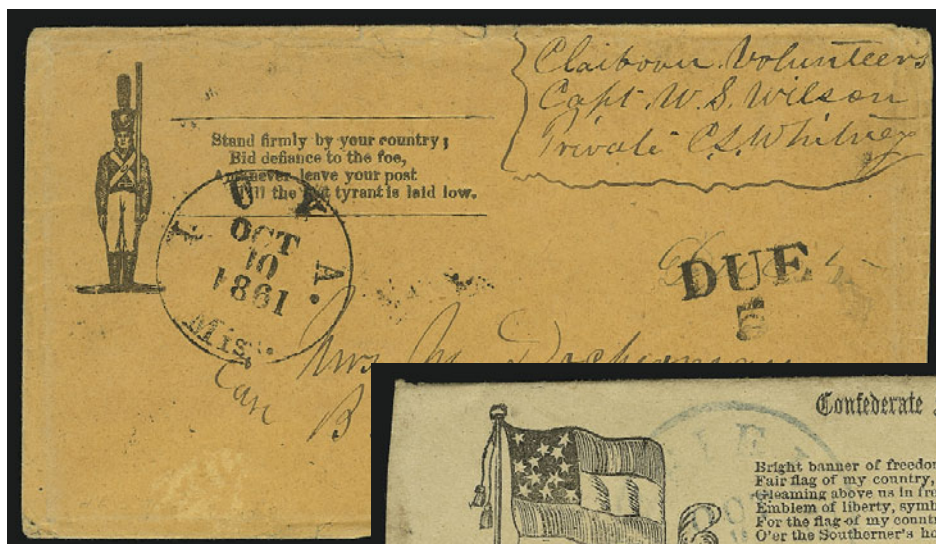 Claiborn Volunteers
Capt. W. S. Wilson
Private C. S. Whitney
Stand firmly by your country;
Bid defiance to the foe,
And never leave your post
Till the tyrant is laid low.
I U K A.
OCT
10
1861
Mis.
DUE
5
Mrs
Confederate
Bright banner of freedom
Fair flag of my country,
Gleaming above us in
Emblem of liberty,
For the flag of my
O'er the Southerner's